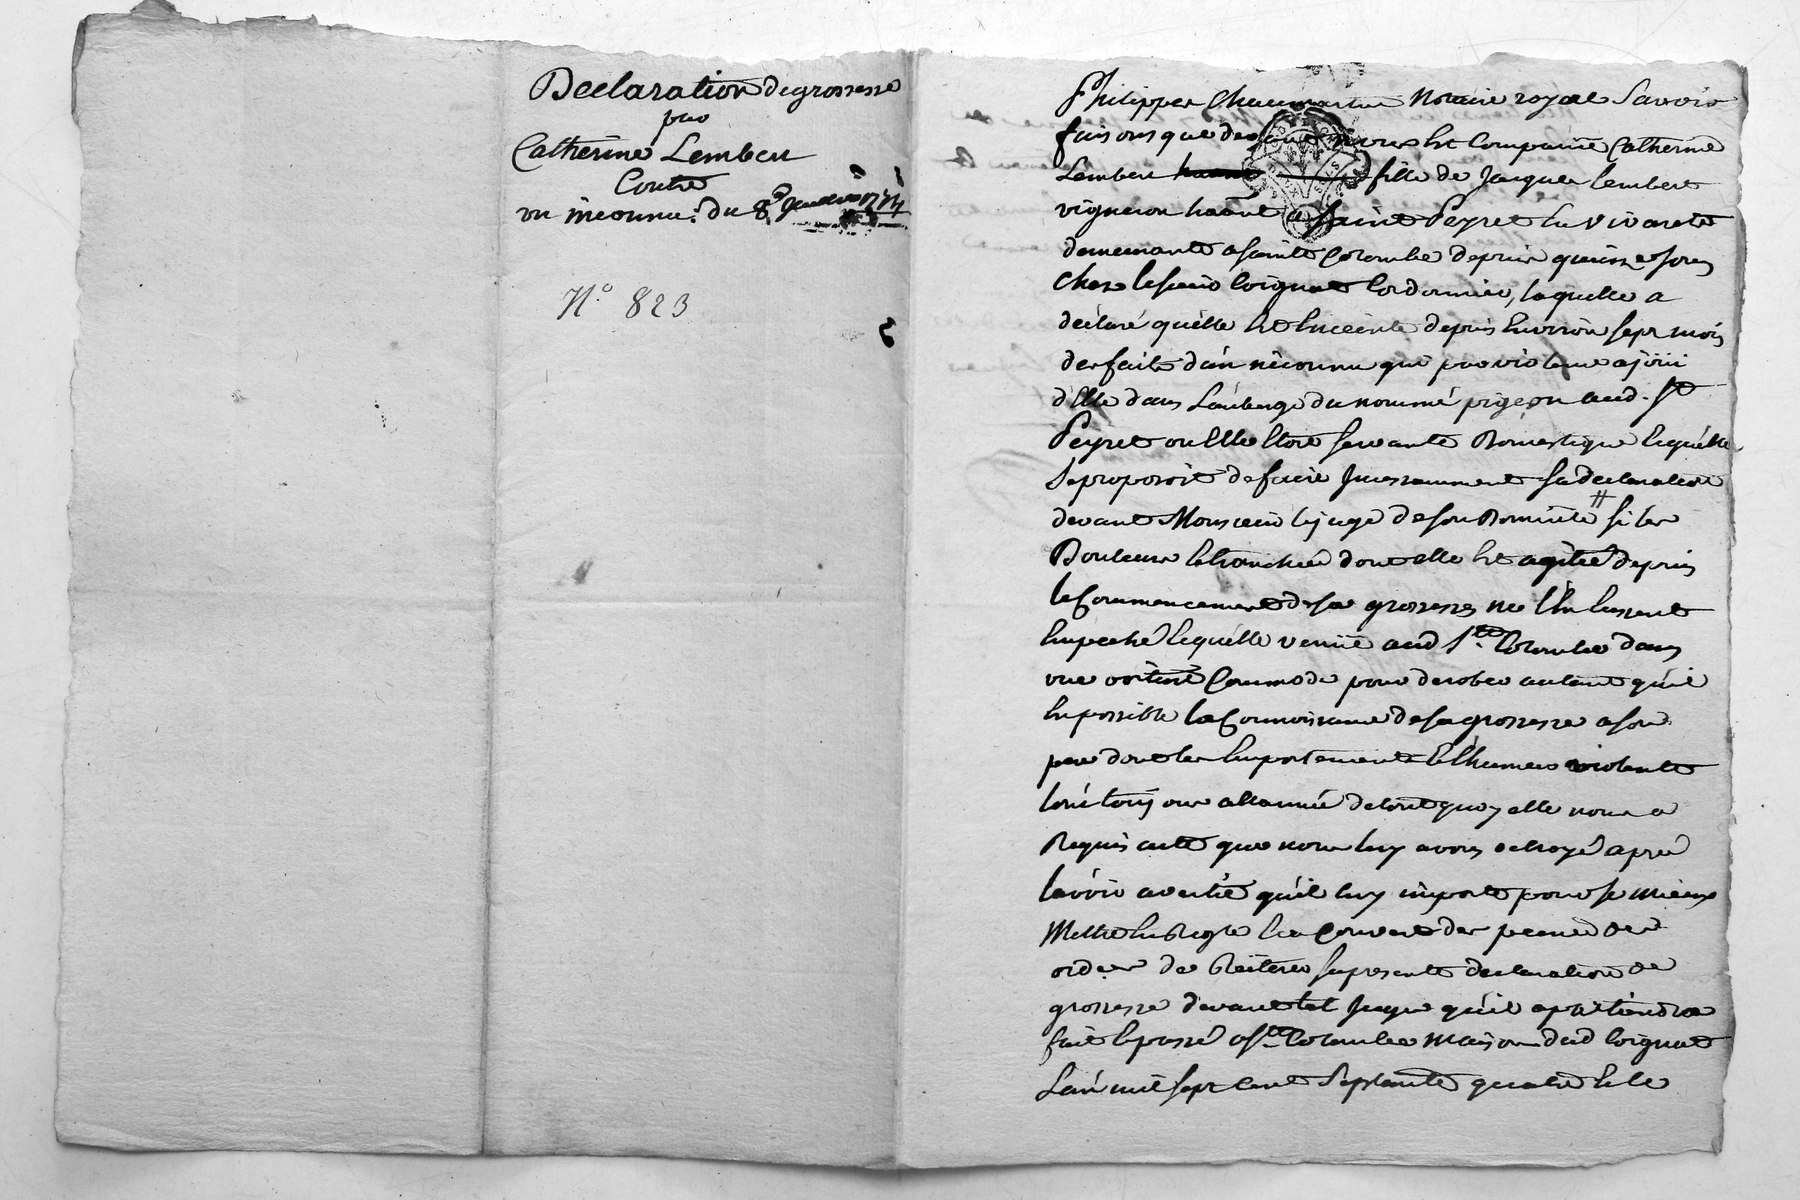 Declaration de grossesse
par
Catherine Lembert
Contre
un inconnu. du 8e Janvier 1774
N.o 823
Philippes Chaumartin Notaire royal Savoir
faisons que devant nous est Comparüe Catherine
Lembert fille de Jacques Lembert
vigneron haânt a Saint Peyret en vivarets
demeurante a sainte Colombe depuis quinse jours
chez le sieur Coignet Cordonnier, laquelle a
déclaré quélle est Enceinte depuis Environ sept mois
des faits d'un inconnu qui par violence a joüi
d'elle dans L'auberge du nommé pigeon aud. St
Peyret ou Elle Etoit servante Domestique lequélle
Se proposoit de faire Incessamment sa declaration
devant Monsieur le juge de son Domicile si les
Douleurs Et tranchées dont elle Est agitée depuis
le Commencement de sa grossesse ne l'En Eussent
Empeché lequélle venüe aud Ste. Colombe dans
une voiture Commode pour derober autant qu'il
Est possible la Connoissance de sa grossesse a son
pere dont les Emportements Et l'humeur violente
l'ont toujour allarmée de tout quoy elle nous a
Requis acte que nous luy avons octroyé aprés
lavoir avertie qu'il luy importe pour se mieux
Mettre En Regle Et a Couvert des peines des
ordces de Reiterer sa presente declaration de
grossesse devant tel Juge qu'il apartiendra
fait Et passé a Ste Colombe Maison dud Coignet
L'an mil sept Cent Septante quatre Et le